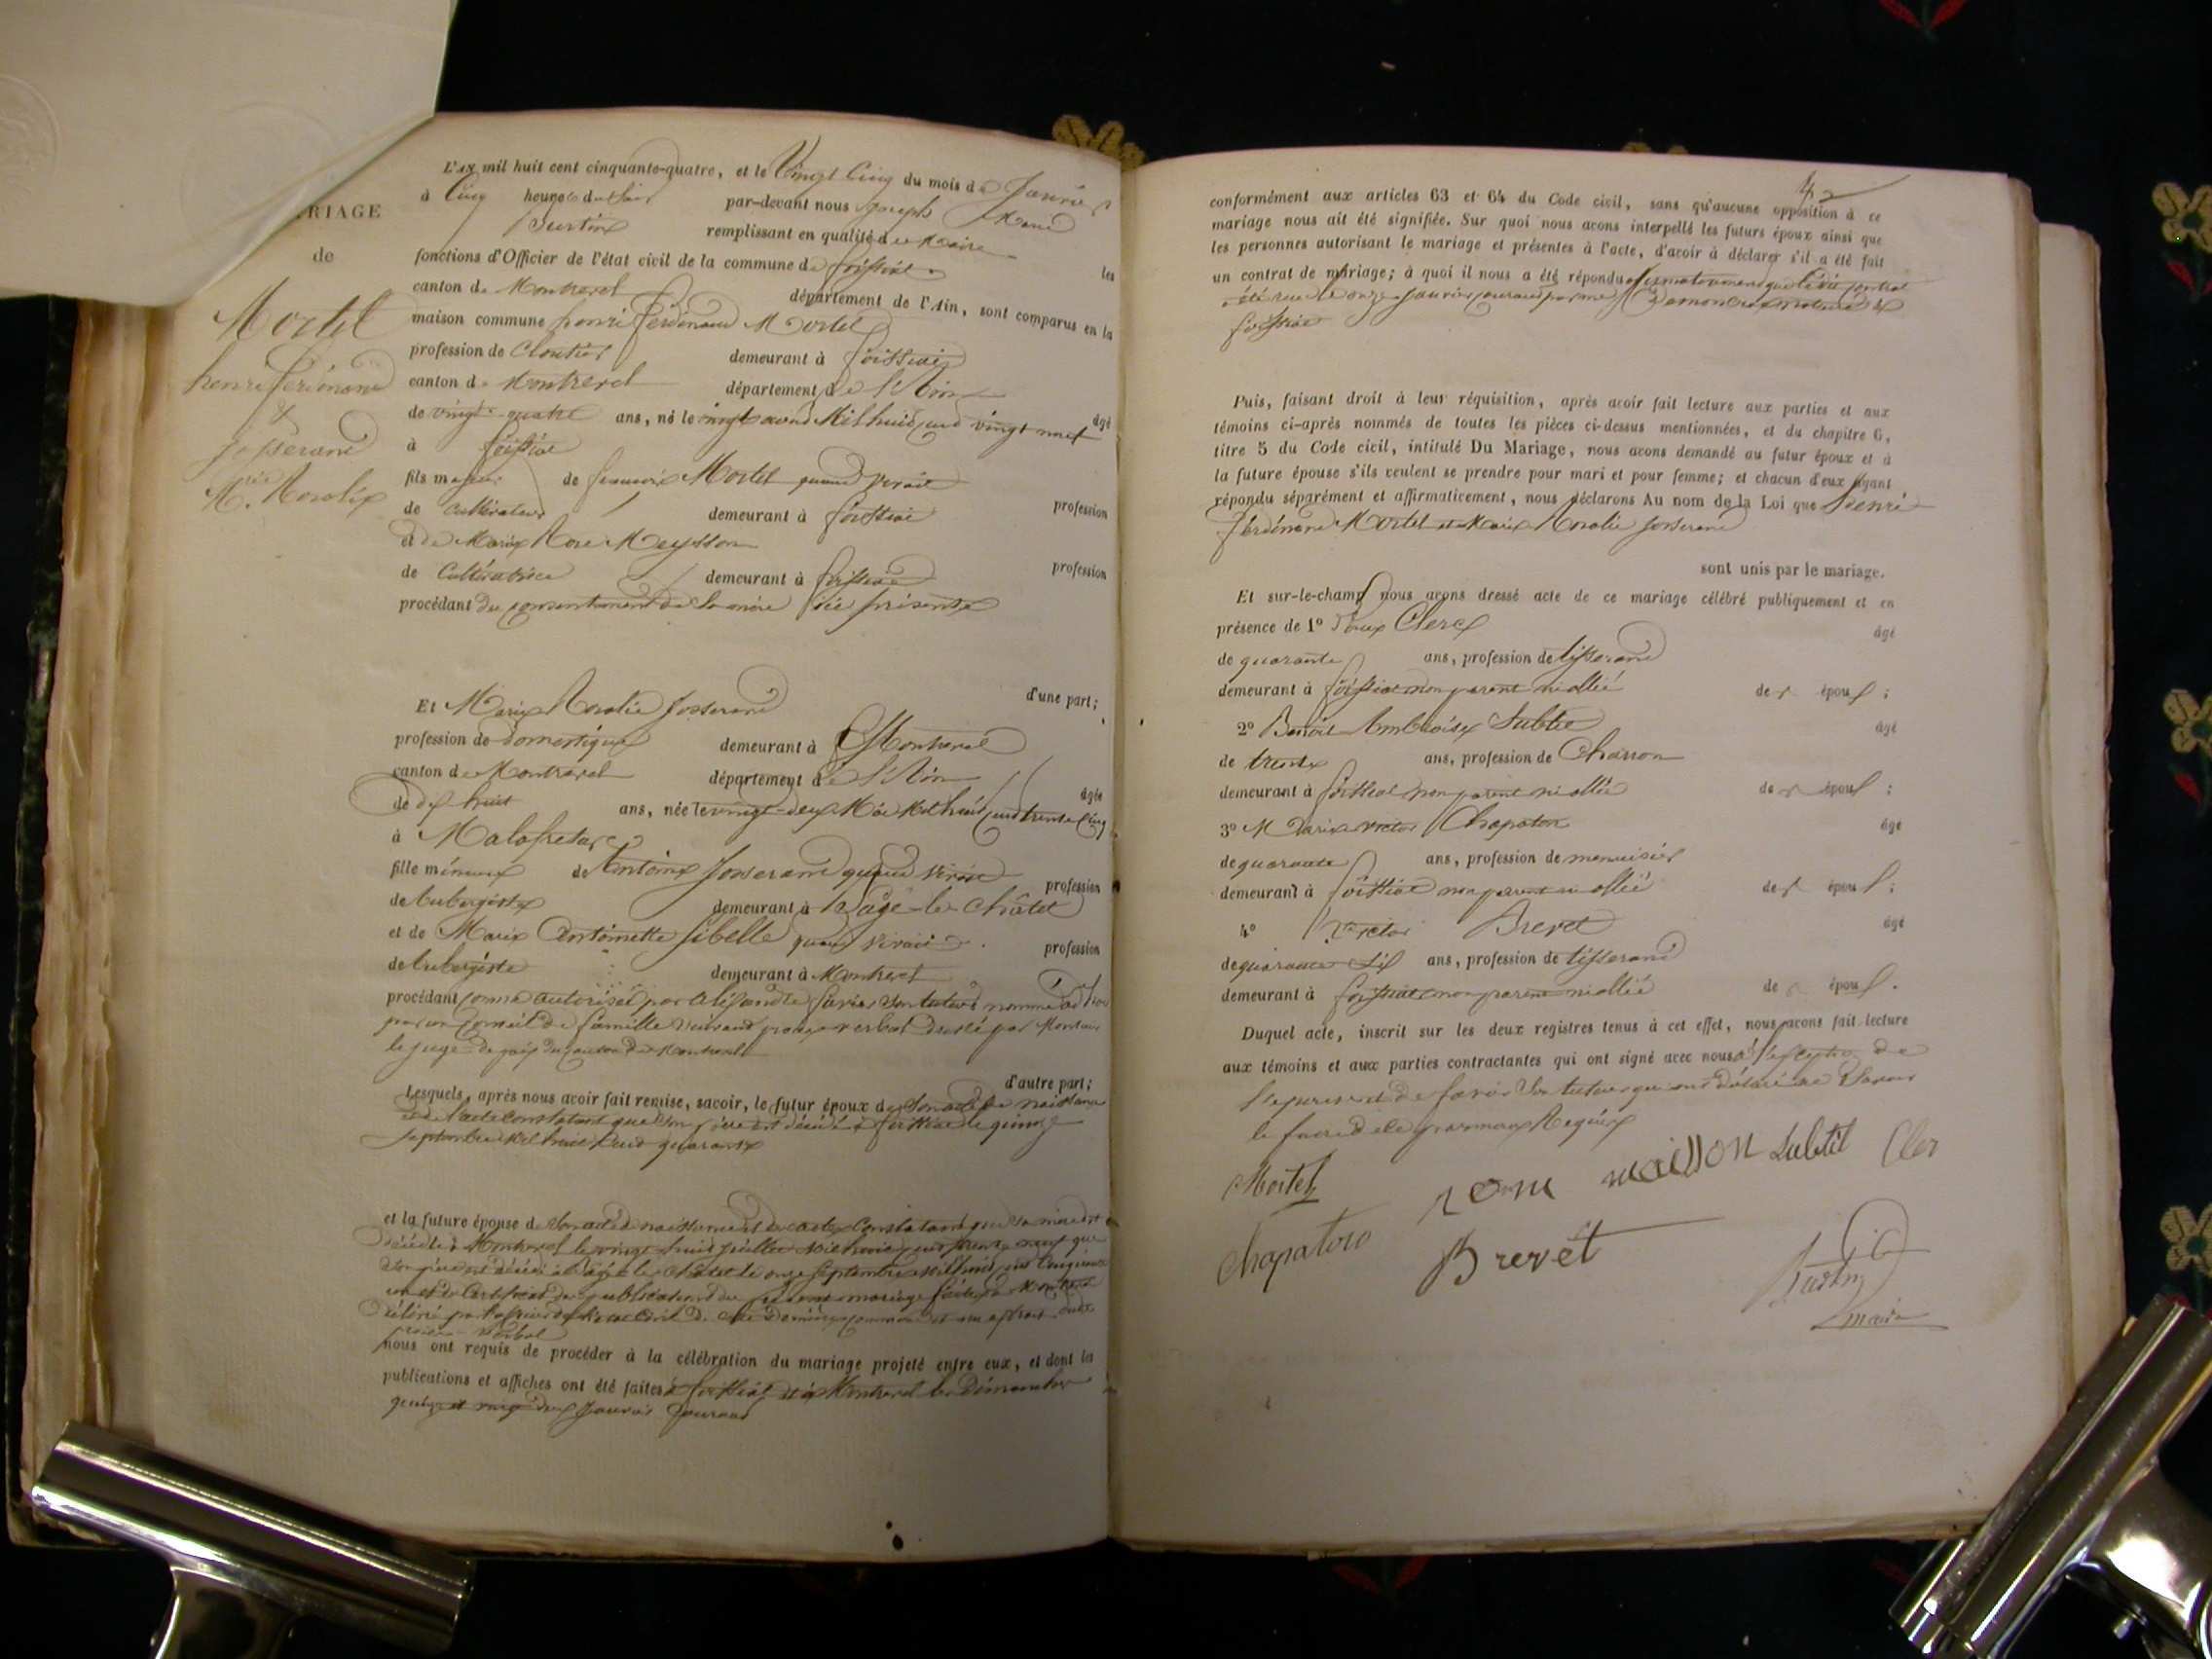 RIAGE
de
Mortel
henri ferdinand
&
josserand
Mie. Rosalie
L'AN mil huit cent cinquante-quatre, et le Vingt Cinq du mois de Janvier
à Cinq heures du Soir par-devant nous joseph Marie
remplissant en qualité de Maire les
fonctions d'Officier de l'état civil de la commune de foissiat
canton de Montrevel département de l'Ain, sont comparus en la
maison commune henri ferdinand Mortel
profession de Cloutier demeurant à foissiat
canton de Montrevel département de l'Ain âgé
de vingt-quatre ans, né le Mil huit cent vingt neuf
à foissiat
fils majeur de francois Mortel quand vivait profession
de Cultivateur demeurant à foissiat
et de Marie Rose Meysson profession
de Cultivatrice demeurant à foissiat
procédant du consentement de la mère ici présente
d'une part;
Et Marie Rosalie josserand
profession de domestique demeurant à Montrevel
canton de Montrevel département de l'Ain âgée
de dix huit ans, née le vingt-deux Mai Mil huit cent trente Cinq
à Malafretaz
fille mineure de Antoine Josserand quand vivait profession
de aubergiste demeurant à Bagé-le-Châtel
et de Marie Antoinette sibelle quand vivait profession
de aubergiste demeurant à Montrevel
procédant comme autorisée par son tuteur nommé
par un Conseil de famille suivant procès verbal dressé par Monsieur
le juge de paix du canton de Montrevel
d'autre part;
Lesquels, après nous avoir fait remise, savoir, le futur époux de Son acte de naissance
et de l'acte constatant que Son père est décédé à foissiat le quinze
septembre Mil huit Cent quarante
et la future épouse de Son acte de naissance et des actes Constatant que sa mère est
décédée à Montrevel le vingt huit juillet Mil huit cent trente neuf que
Son père est décédé à Bagé le Châtel le onze Septembre Mil huit cent Cinquante
et du Certificat de publications du présent mariage faites à Montrevel
délivré par l'officier de l'état Civil de cette dernière commune et un extrait dudit
procès-verbal
nous ont requis de procéder à la célébration du mariage projeté entre eux, et dont les
publications et affiches ont été faites à foissiat et à Montrevel les Dimanches
quinze et vingt deux Janvier Courant
42
conformément aux articles 63 et 64 du Code civil, sans qu'aucune opposition à ce
mariage nous ait été signifiée. Sur quoi nous avons interpellé les futurs époux ainsi que
les personnes autorisant le mariage et présentes à l'acte, d'avoir à déclarer s'il a été fait
un contrat de mariage; à quoi il nous a été répondu affirmativement que ledit contrat
a été reçu le onze Janvier courant par me notaire à
foissiat
Puis, faisant droit à leur réquisition, après avoir fait lecture aux parties et aux
témoins ci-après nommés de toutes les pièces ci-dessus mentionnées, et du chapitre 6,
titre 5 du Code civil, intitulé Du Mariage, nous avons demandé au futur époux et à
la future épouse s'ils veulent se prendre pour mari et pour femme; et chacun d'eux ayant
répondu séparément et affirmativement, nous déclarons Au nom de la Loi que Henri
ferdinand Mortel et Marie Rosalie Josserand
sont unis par le mariage.
Et sur-le-champ nous avons dressé acte de ce mariage célébré publiquement et en
présence de 1° Clerc âgé
de quarante ans, profession de tisserand
demeurant à foissiat non parent ni allié des époux;
2° Benoit Ambroise Subtil âgé
de trente ans, profession de Charron
demeurant à foissiat non parent ni allié des époux;
3° Marie victor Chapaton âgé
de quarante ans, profession de menuisier
demeurant à foissiat non parent ni allié des époux;
4° Victor Brevet âgé
de quarante Six ans, profession de tisserand
demeurant à foissiat non parent ni allié des époux.
Duquel acte, inscrit sur les deux registres tenus à cet effet, nous avons fait lecture
aux témoins et aux parties contractantes qui ont signé avec nous à l'exception de
l'épouse et de Son tuteur qui ont déclaré ne Savoir
le faire de ce Requis
Mortel
maisson
Subtil
Cler
Chapaton
Brevet
maire